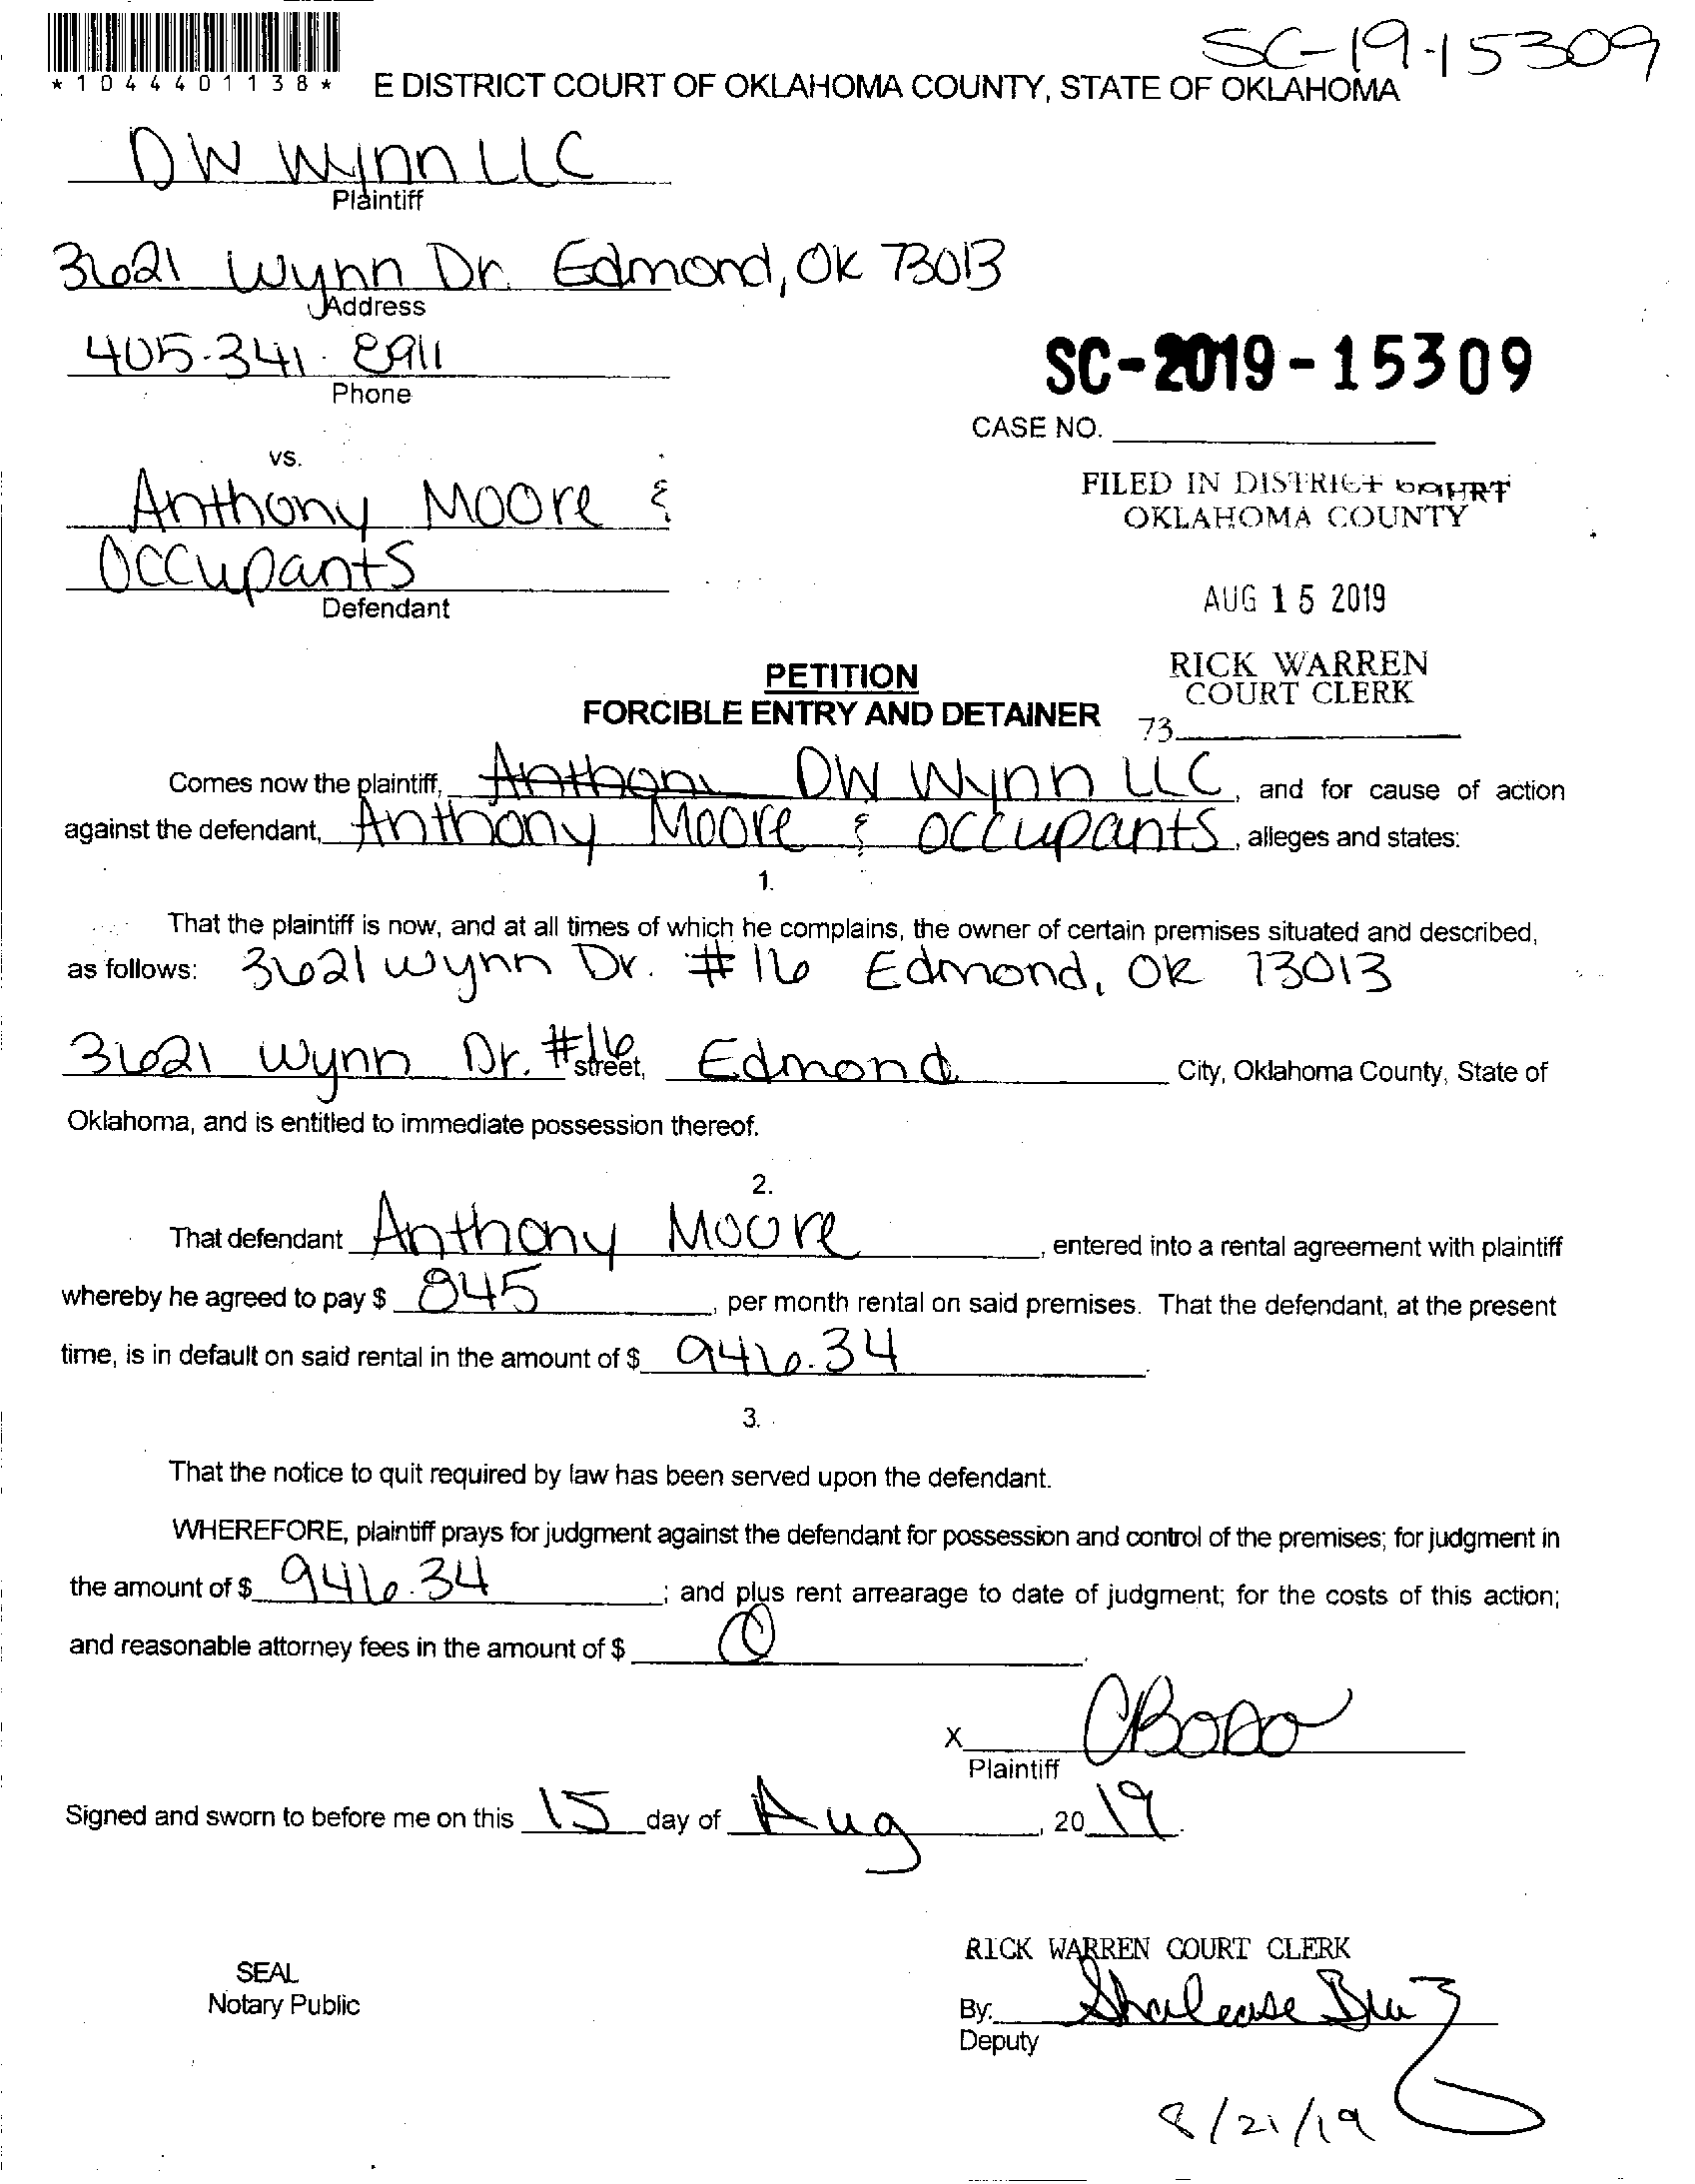 SC-19-15309
*1044401138*
E DISTRICT COURT OF OKLAHOMA COUNTY, STATE OF OKLAHOMA
DW Wynn LLC
Plaintiff
3621 Wynn Dr. Edmond, OK 73013
Address
405-341-8911
Phone
SC-2019-15309
CASE NO.
vs.
FILED IN DISTRICT COURT
OKLAHOMA COUNTY
Anthony Moore &
Occupants
Defendant
AUG 15 2019
RICK WARREN
COURT CLERK
73
PETITION
FORCIBLE ENTRY AND DETAINER
Comes now the plaintiff, Anthony DW Wynn LLC, and for cause of action
against the defendant, Anthony Moore & occupants, alleges and states:
1.
That the plaintiff is now, and at all times of which he complains, the owner of certain premises situated and described,
as follows: 3621 Wynn Dr. #16 Edmond, OK 73013
3621 Wynn Dr. #16 street, Edmond City, Oklahoma County, State of
Oklahoma, and is entitled to immediate possession thereof.
2.
That defendant Anthony Moore, entered into a rental agreement with plaintiff
whereby he agreed to pay $ 845, per month rental on said premises. That the defendant, at the present
time, is in default on said rental in the amount of $ 946.34.
3.
That the notice to quit required by law has been served upon the defendant.
WHEREFORE, plaintiff prays for judgment against the defendant for possession and control of the premises; for judgment in
the amount of $ 946.34; and plus rent arrearage to date of judgment; for the costs of this action;
and reasonable attorney fees in the amount of $ 0.
X
Plaintiff
Signed and sworn to before me on this 15 day of Aug, 2019.
RICK WARREN COURT CLERK
SEAL
Notary Public
By: Shalease
Deputy
8/21/19